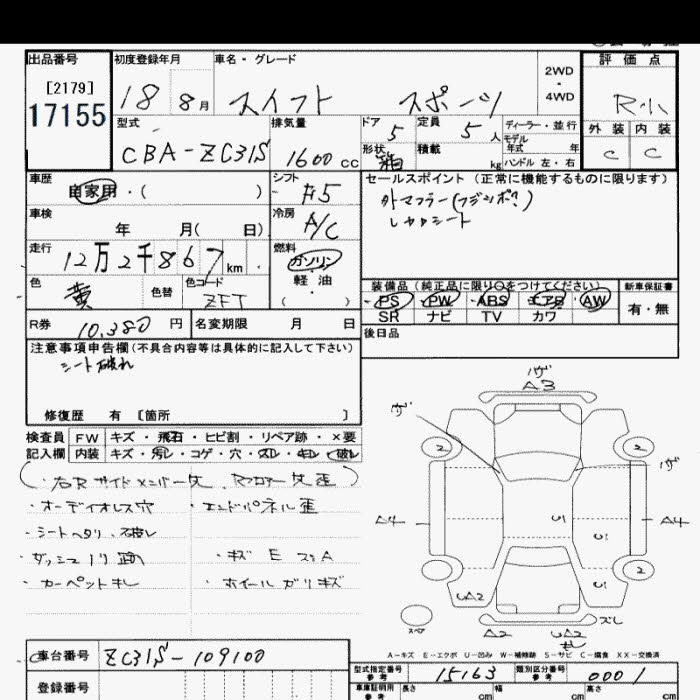 出品番号 初度登録年月 車名・グレード 評価点
[2179]
17155
18 8月 スイフト スポーツ 2WD ・ 4WD R小
型式 排気量 ドア 定員 ディーラー・並行 外装 内装
CBA-ZC31S 1600cc 5 5人 モデル年式 年 C C
形状 箱 積載 kg ハンドル 左・右
車歴 シフト セールスポイント (正常に機能するものに限ります)
自家用・( ) F5 外マフラー(フジツボ?)
レカロシート
車検 冷房
年 月( 日) A/C
走行 燃料
12万2千867km ガソリン
軽油
( ・ )
色 色替 色コード 装備品 (純正品に限り○をつけてください) 新車保証書
黄 ZFT PS PW ABS エアB AW 有・無
SR ナビ TV カワ
R券 10,380円 名変期限 月 日 後日品
注意事項申告欄(不具合内容等は具体的に記入して下さい)
シート破れ
修復歴 有 [箇所 ]
検査員 FW キズ・飛石・ヒビ割・リペア跡・×要
記入欄 内装 キズ・汚レ・コゲ・穴・スレ・キレ・破レ
・右Rサイドメンバー 、Rフロアー 歪
・オーディオレス穴 ・エンドパネル歪
・シートヘタリ、破レ
・ダッシュノリ跡 ・キズ E
・カーペットキレ ・ホイールガリキズ
A3
2 2
A4 A4
U U
2 2
UA2 U
スペア A2 UA2 ズレ
A-キズ E-エクボ U-凹み W-補修跡 S-サビ C-腐食 XX-交換済
車台番号 ZC31S-109100
型式指定番号 参考 15163 類別区分番号 参考 0001
登録番号 車庫証明用 参考 長さ cm 幅 cm 高さ cm